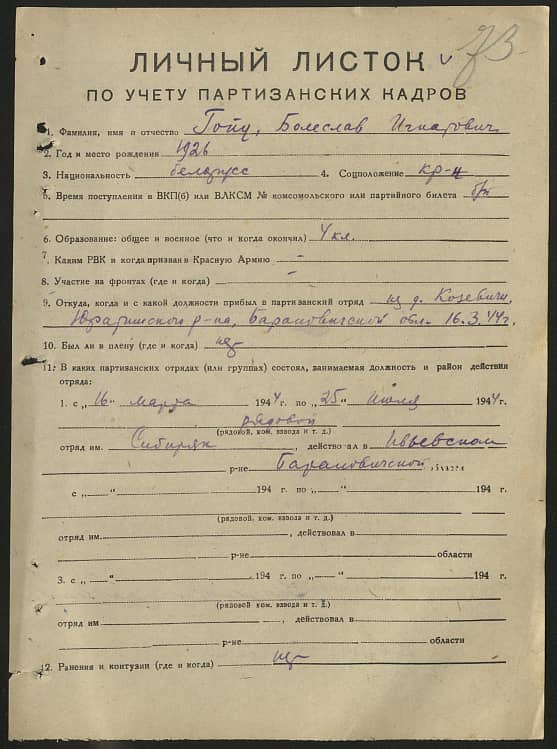 73
ЛИЧНЫЙ ЛИСТОК
ПО УЧЕТУ ПАРТИЗАНСКИХ КАДРОВ
1. Фамилия, имя и отчество Болеслав Игнатович
2. Год и место рождения 1926
3. Национальность беларусс 4. Соцположение кр-н
5. Время поступления в ВКП(б) или ВЛКСМ № комсомольского или партийного билета б/п
6. Образование: общее и военное (что и когда окончил) 4 кл.
7. Каким РВК и когда призван в Красную Армию —
8. Участие на фронтах (где и когда) —
9. Откуда, когда и с какой должности прибыл в партизанский отряд из д. Козевичи,
Юратишского р-на, Барановичской обл. 16.3.44г.
10. Был ли в плену (где и когда) нет
11. В каких партизанских отрядах (или группах) состоял, занимаемая должность и район действия
отряда:
1. с „16" марта 1944 г. по „25" июля 1944 г.
рядовой
(рядовой, ком. взвода и т. д.)
отряд им. Сибиряк, действовал в Ивьевском
р-не Барановичской области
с „—"194 г. по „—"194 г.
(рядовой, ком. взвода и т. д.)
отряд им., действовал в
р-не области
3. с „—"194 г. по „—"194 г.
(рядовой, ком. взвода и т. д.)
отряд им, действовал в
р-не области
12. Ранения и контузии (где и когда) нет